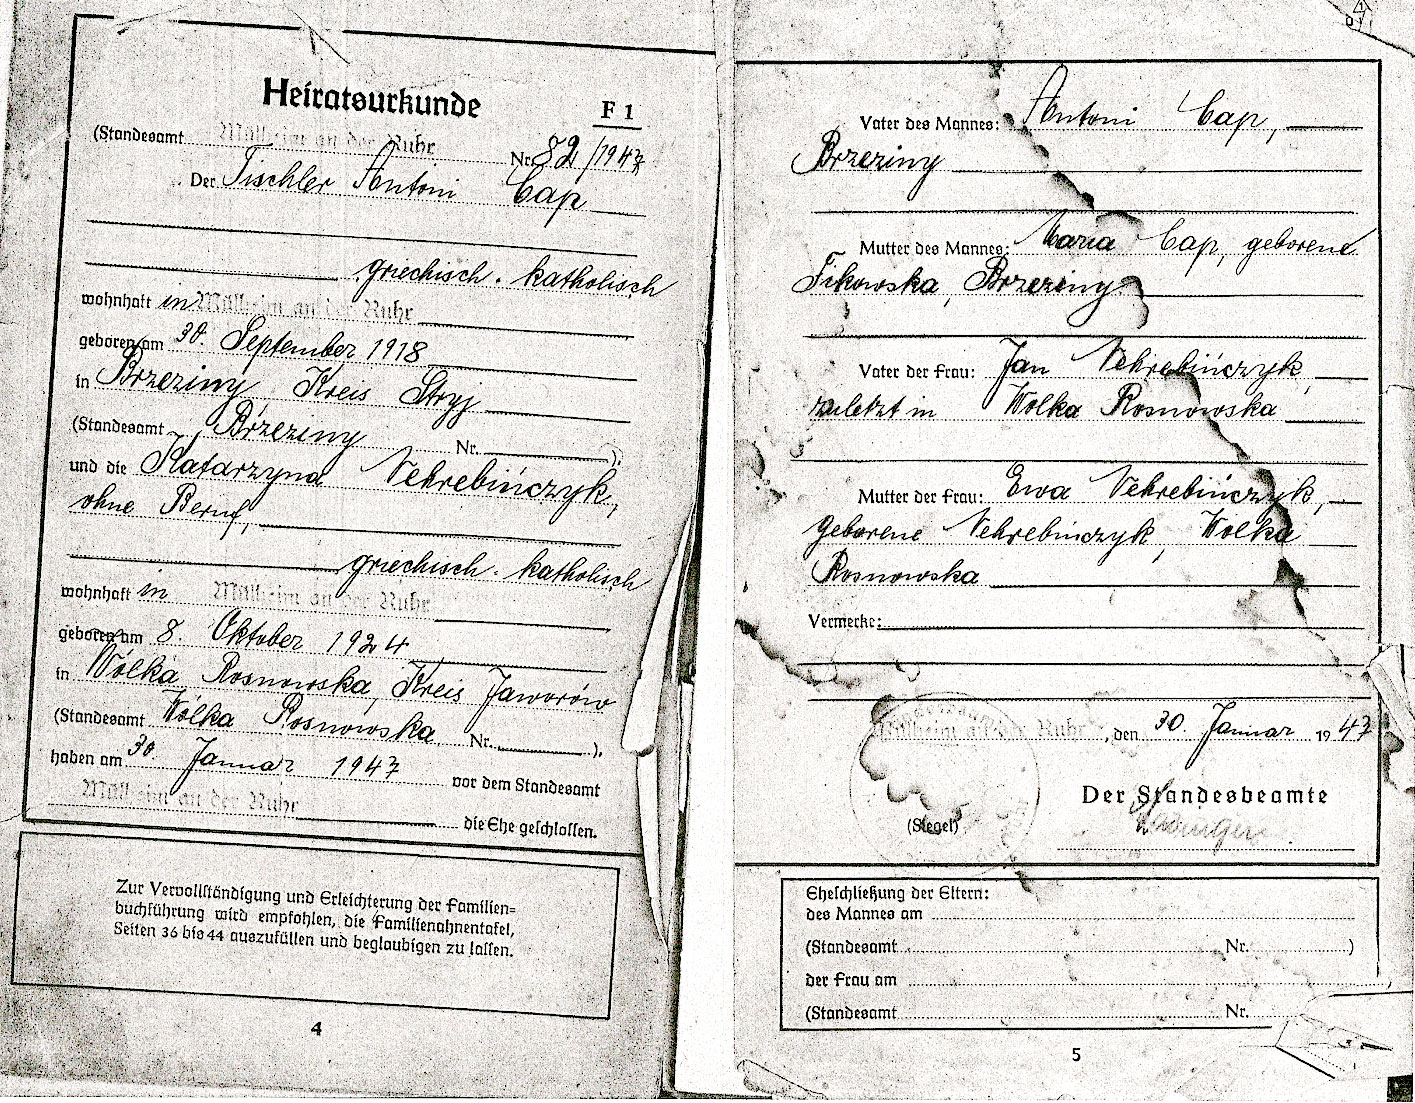 Heiratsurkunde
F 1
(Standesamt Mülheim an der Ruhr Nr. 82/1943
Der Tischler Antoni Cap
griechisch-katholisch
wohnhaft in Mülheim an der Ruhr
geboren am 30. September 1918
in Brzeziny Kreis Stryj
(Standesamt Brzeziny Nr. ),
und die Katarzyna Vehrebińczyk,
ohne Beruf,
griechisch-katholisch
wohnhaft in Mülheim an der Ruhr
geboren am 8. Oktober 1924
in Wólka Rosnowska, Kreis Jaworów
(Standesamt Wólka Rosnowska Nr. ),
haben am 30. Januar 1943 vor dem Standesamt
Mülheim an der Ruhr die Ehe geschlossen.
Zur Vervollständigung und Erleichterung der Familien=
buchführung wird empfohlen, die Familienahnentafel,
Seiten 36 bis 44 auszufüllen und beglaubigen zu lassen.
4
Vater des Mannes: Antoni Cap,
Brzeziny
Mutter des Mannes: Maria Cap, geborene
Fikowska, Brzeziny
Vater der Frau: Jan Vehrebińczyk,
zuletzt in Wolka Rosnowska
Mutter der Frau: Ewa Vehrebińczyk,
geborene Vehrebińczyk, Wolka
Rosnowska
Vermerke:
Mülheim an der Ruhr, den 30. Januar 1943
Der Standesbeamte
(Siegel)
Eheschließung der Eltern:
des Mannes am
(Standesamt Nr. )
der Frau am
(Standesamt Nr.
5